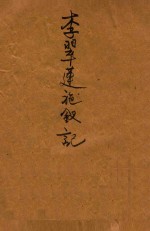 李翠蓮施釵記